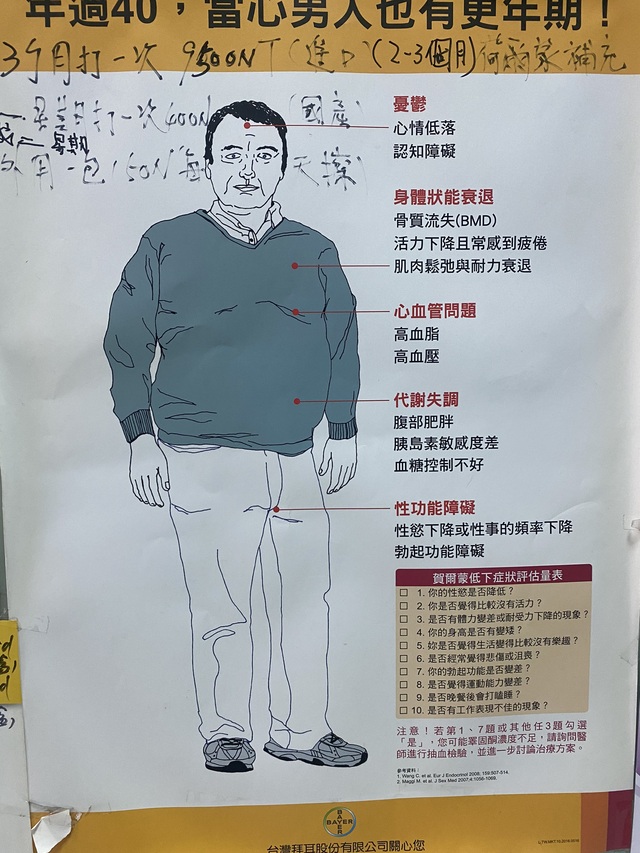 年過40，當心男人也有更年期！
3个月打一次 9500NT(進口)(2-3個月)荷爾蒙補充
打一次400N (國產)
星期
用一包150N/每天擦
憂鬱
心情低落
認知障礙
身體狀能衰退
骨質流失(BMD)
活力下降且常感到疲倦
肌肉鬆弛與耐力衰退
心血管問題
高血脂
高血壓
代謝失調
腹部肥胖
胰島素敏感度差
血糖控制不好
性功能障礙
性慾下降或性事的頻率下降
勃起功能障礙
賀爾蒙低下症狀評估量表
1. 你的性慾是否降低？
2. 你是否覺得比較沒有活力？
3. 是否有體力變差或耐受力下降的現象？
4. 你的身高是否有變矮？
5. 妳是否覺得生活變得比較沒有樂趣？
6. 是否經常覺得悲傷或沮喪？
7. 你的勃起功能是否變差？
8. 是否覺得運動能力變差？
9. 是否晚餐後會打瞌睡？
10. 是否有工作表現不佳的現象？
注意！若第1、7題或其他任3題勾選
「是」，您可能睪固酮濃度不足，請詢問醫
師進行抽血檢驗，並進一步討論治療方案。
參考資料：
1. Wang C. et al. Eur J Endocrinol 2008; 159:507-514.
2. Maggi M. et al. J Sex Med 2007;4:1056-1069.
BAYER
BAYER
台灣拜耳股份有限公司關心您